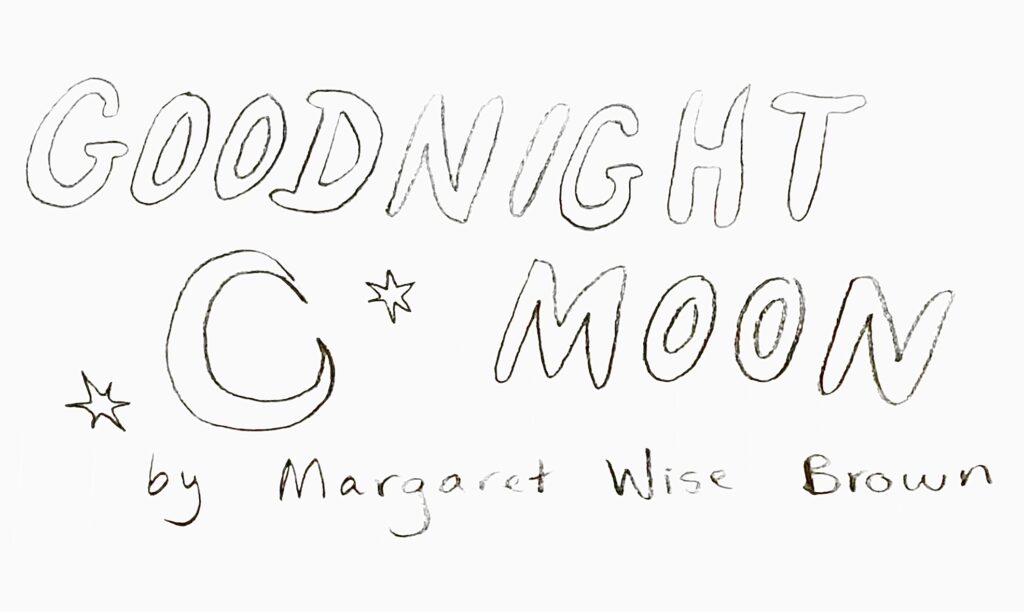 GOODNIGHT
MOON
by Margaret Wise Brown